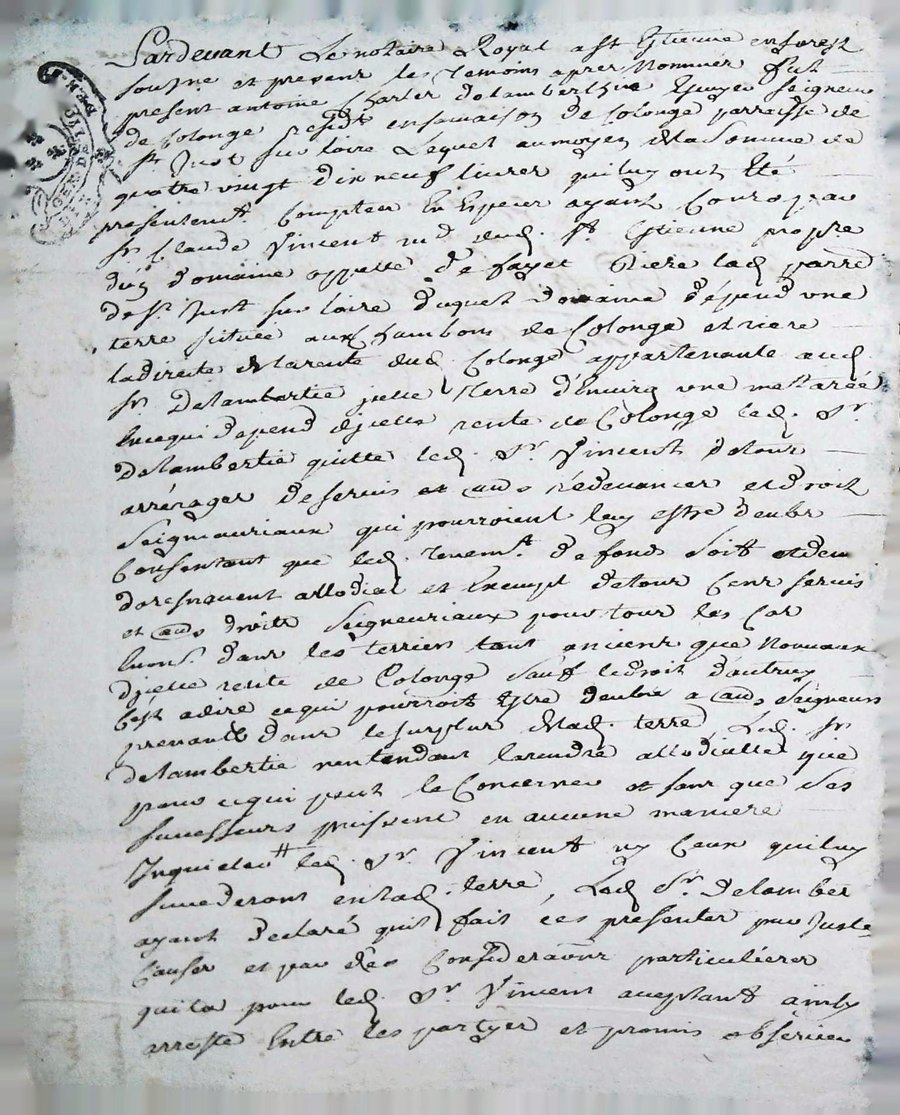 Pardevant Le notaire Royal a St Etienne en forest
sousne et present les temoins apres Nommer fut
present antoine Charles Delambertye Ecuyer Seigneur
de Colonge residt en sa maison de Colonge parroisse de
St Just sur loire Lequel au moyen de la somme de
quatre vingt dix neuf livres qui luy ont Eté
presentemt Compteer En Especer ayant Cours par
Sr Claude Vincent md dud. St Etienne propre
du domaine appellé de fayet Riere lad parre
de St Just sur loire duquel domaine dépend une
terre située aux Chambons de Colonge et riere
la directe et la rente dud. Colonge appartenante aud.
Sr Delambertie jcelle terre d'Environ une met arée
En ce qui depend djcelle rente de Colonge led. Sr
Delambertie quitte led. Sr Vincent de tour
arrérager de servis et aus redevancer et droit
Seigneuriaux qui pourroient luy estre deubs
Consentant que led. tenemt de fond soit et demeu
doresnavent allodial et Exempt de tour Cens servis
et aus droits Seigneuriaux pour tour les Cas
dans les terriers tant anciens que Nouveaux
djcelle rente de Colonge sauf le droit d'autruy
C'est a dire ce qui pourroit Estre deubs a aus Seigneurs
prenants dans le surplus de lad. terre Led. Sr
delambertie n'entendant la rendre allodialle que
pour ce qui peut le Concerner et sans que ses
successeurs puissent en aucune maniere
Inquieter led. Sr Vincent ny Ceux qui luy
succederont en lad. terre, Led Sr Delamber
ayant declaré quil fait ces presentes par Juste
Causer et par des Considerations particulieres
qui la pour led. Sr Vincent aceptant ainsy
arreste Entre les partyes et promis observer